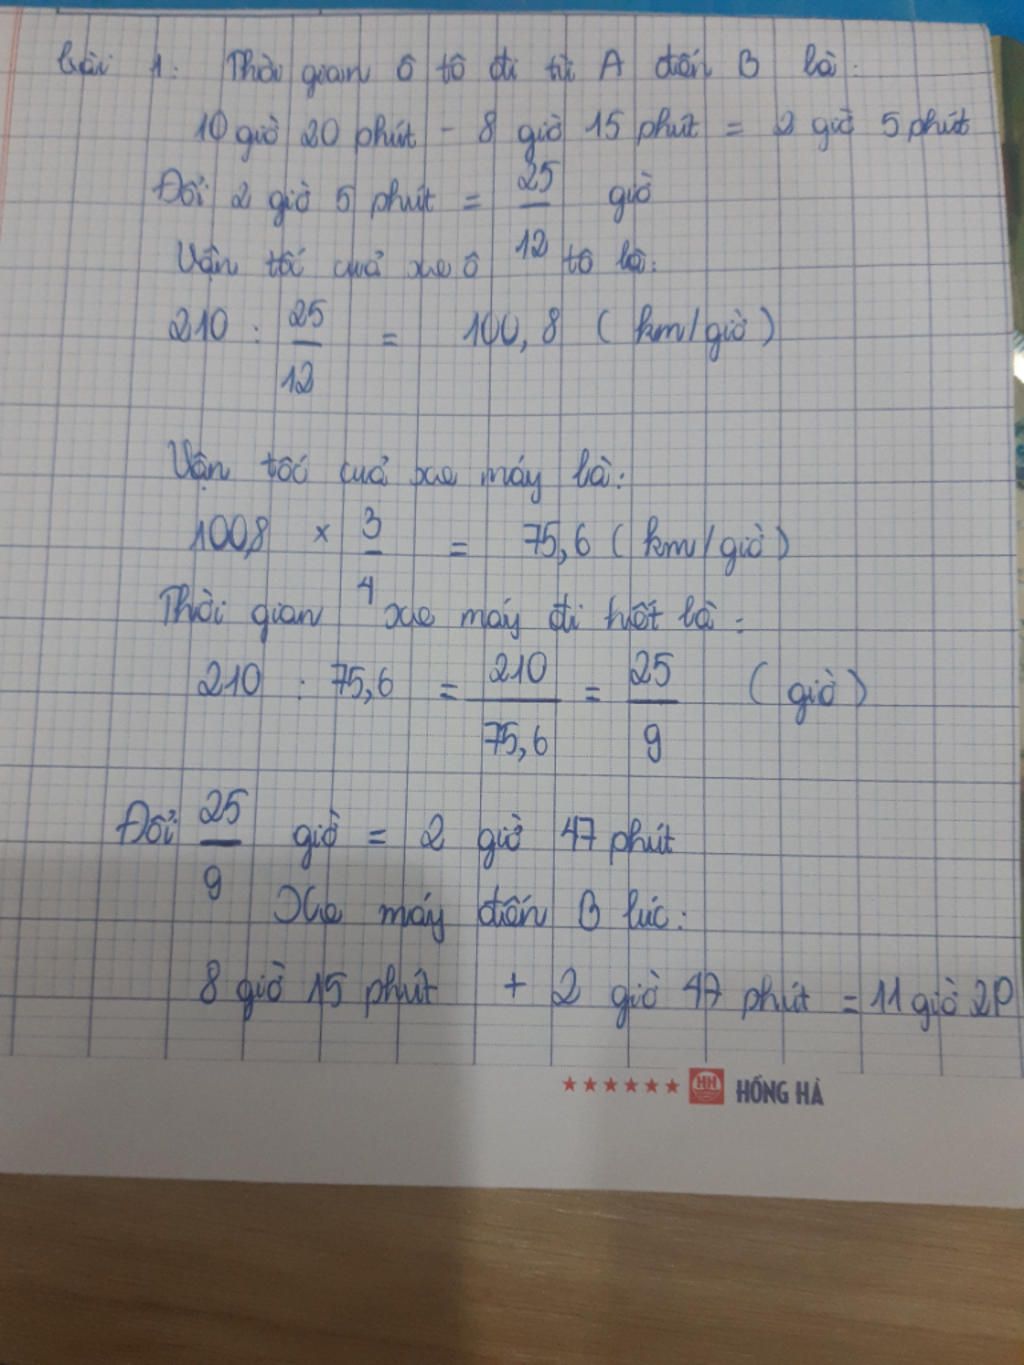 bài 1: Thời gian ô tô đi từ A đến B là:
10 giờ 20 phút - 8 giờ 15 phút = 2 giờ 5 phút
Đổi 2 giờ 5 phút = 25/12 giờ
Vận tốc của xe ô tô là:
210 : 25/12 = 100,8 ( km/giờ )
Vận tốc của xe máy là:
100,8 × 3/4 = 75,6 ( km/giờ )
Thời gian xe máy đi hết là :
210 : 75,6 = 210/75,6 = 25/9 ( giờ )
Đổi 25/9 giờ = 2 giờ 47 phút
Xe máy đến B lúc:
8 giờ 15 phút + 2 giờ 47 phút = 11 giờ 2P
HH HỒNG HÀ